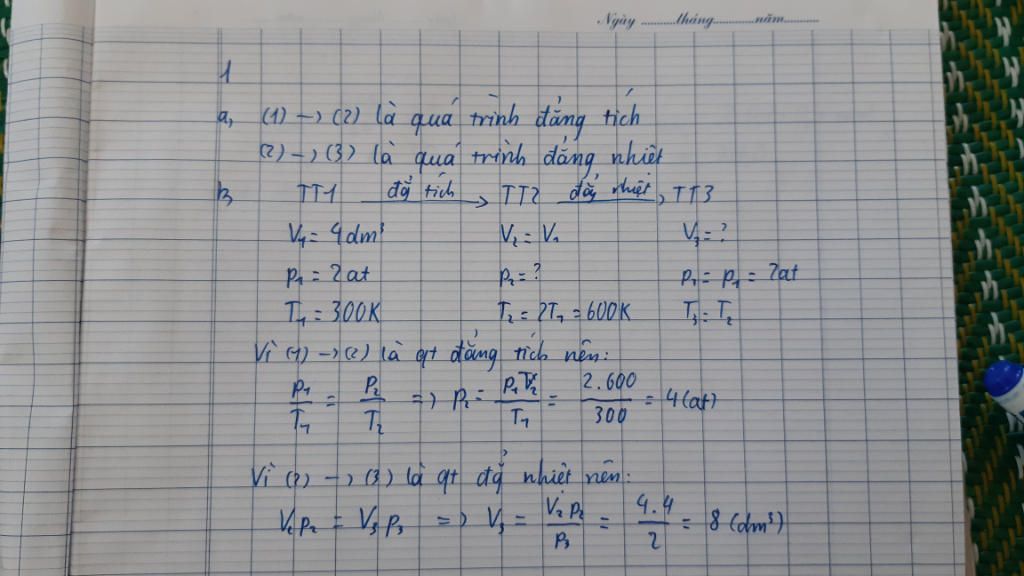 Ngày ............tháng............năm............
1
a, (1) → (2) là quá trình đẳng tích
(2) → (3) là quá trình đẳng nhiệt
b, TT1 đẳ tích → TT2 đẳ nhiệt → TT3
V₁ = 4 dm³ V₂ = V₁ V₃ = ?
p₁ = 2at p₂ = ? p₃ = p₁ = 2at
T₁ = 300K T₂ = 2T₁ = 600K T₃ = T₂
Vì (1) → (2) là qt đẳng tích nên:
p₁/T₁ = p₂/T₂ => p₂ = p₁T₂/T₁ = 2.600/300 = 4 (at)
Vì (2) → (3) là qt đẳ nhiệt nên:
V₂p₂ = V₃p₃ => V₃ = V₂p₂/p₃ = 4.4/2 = 8 (dm³)